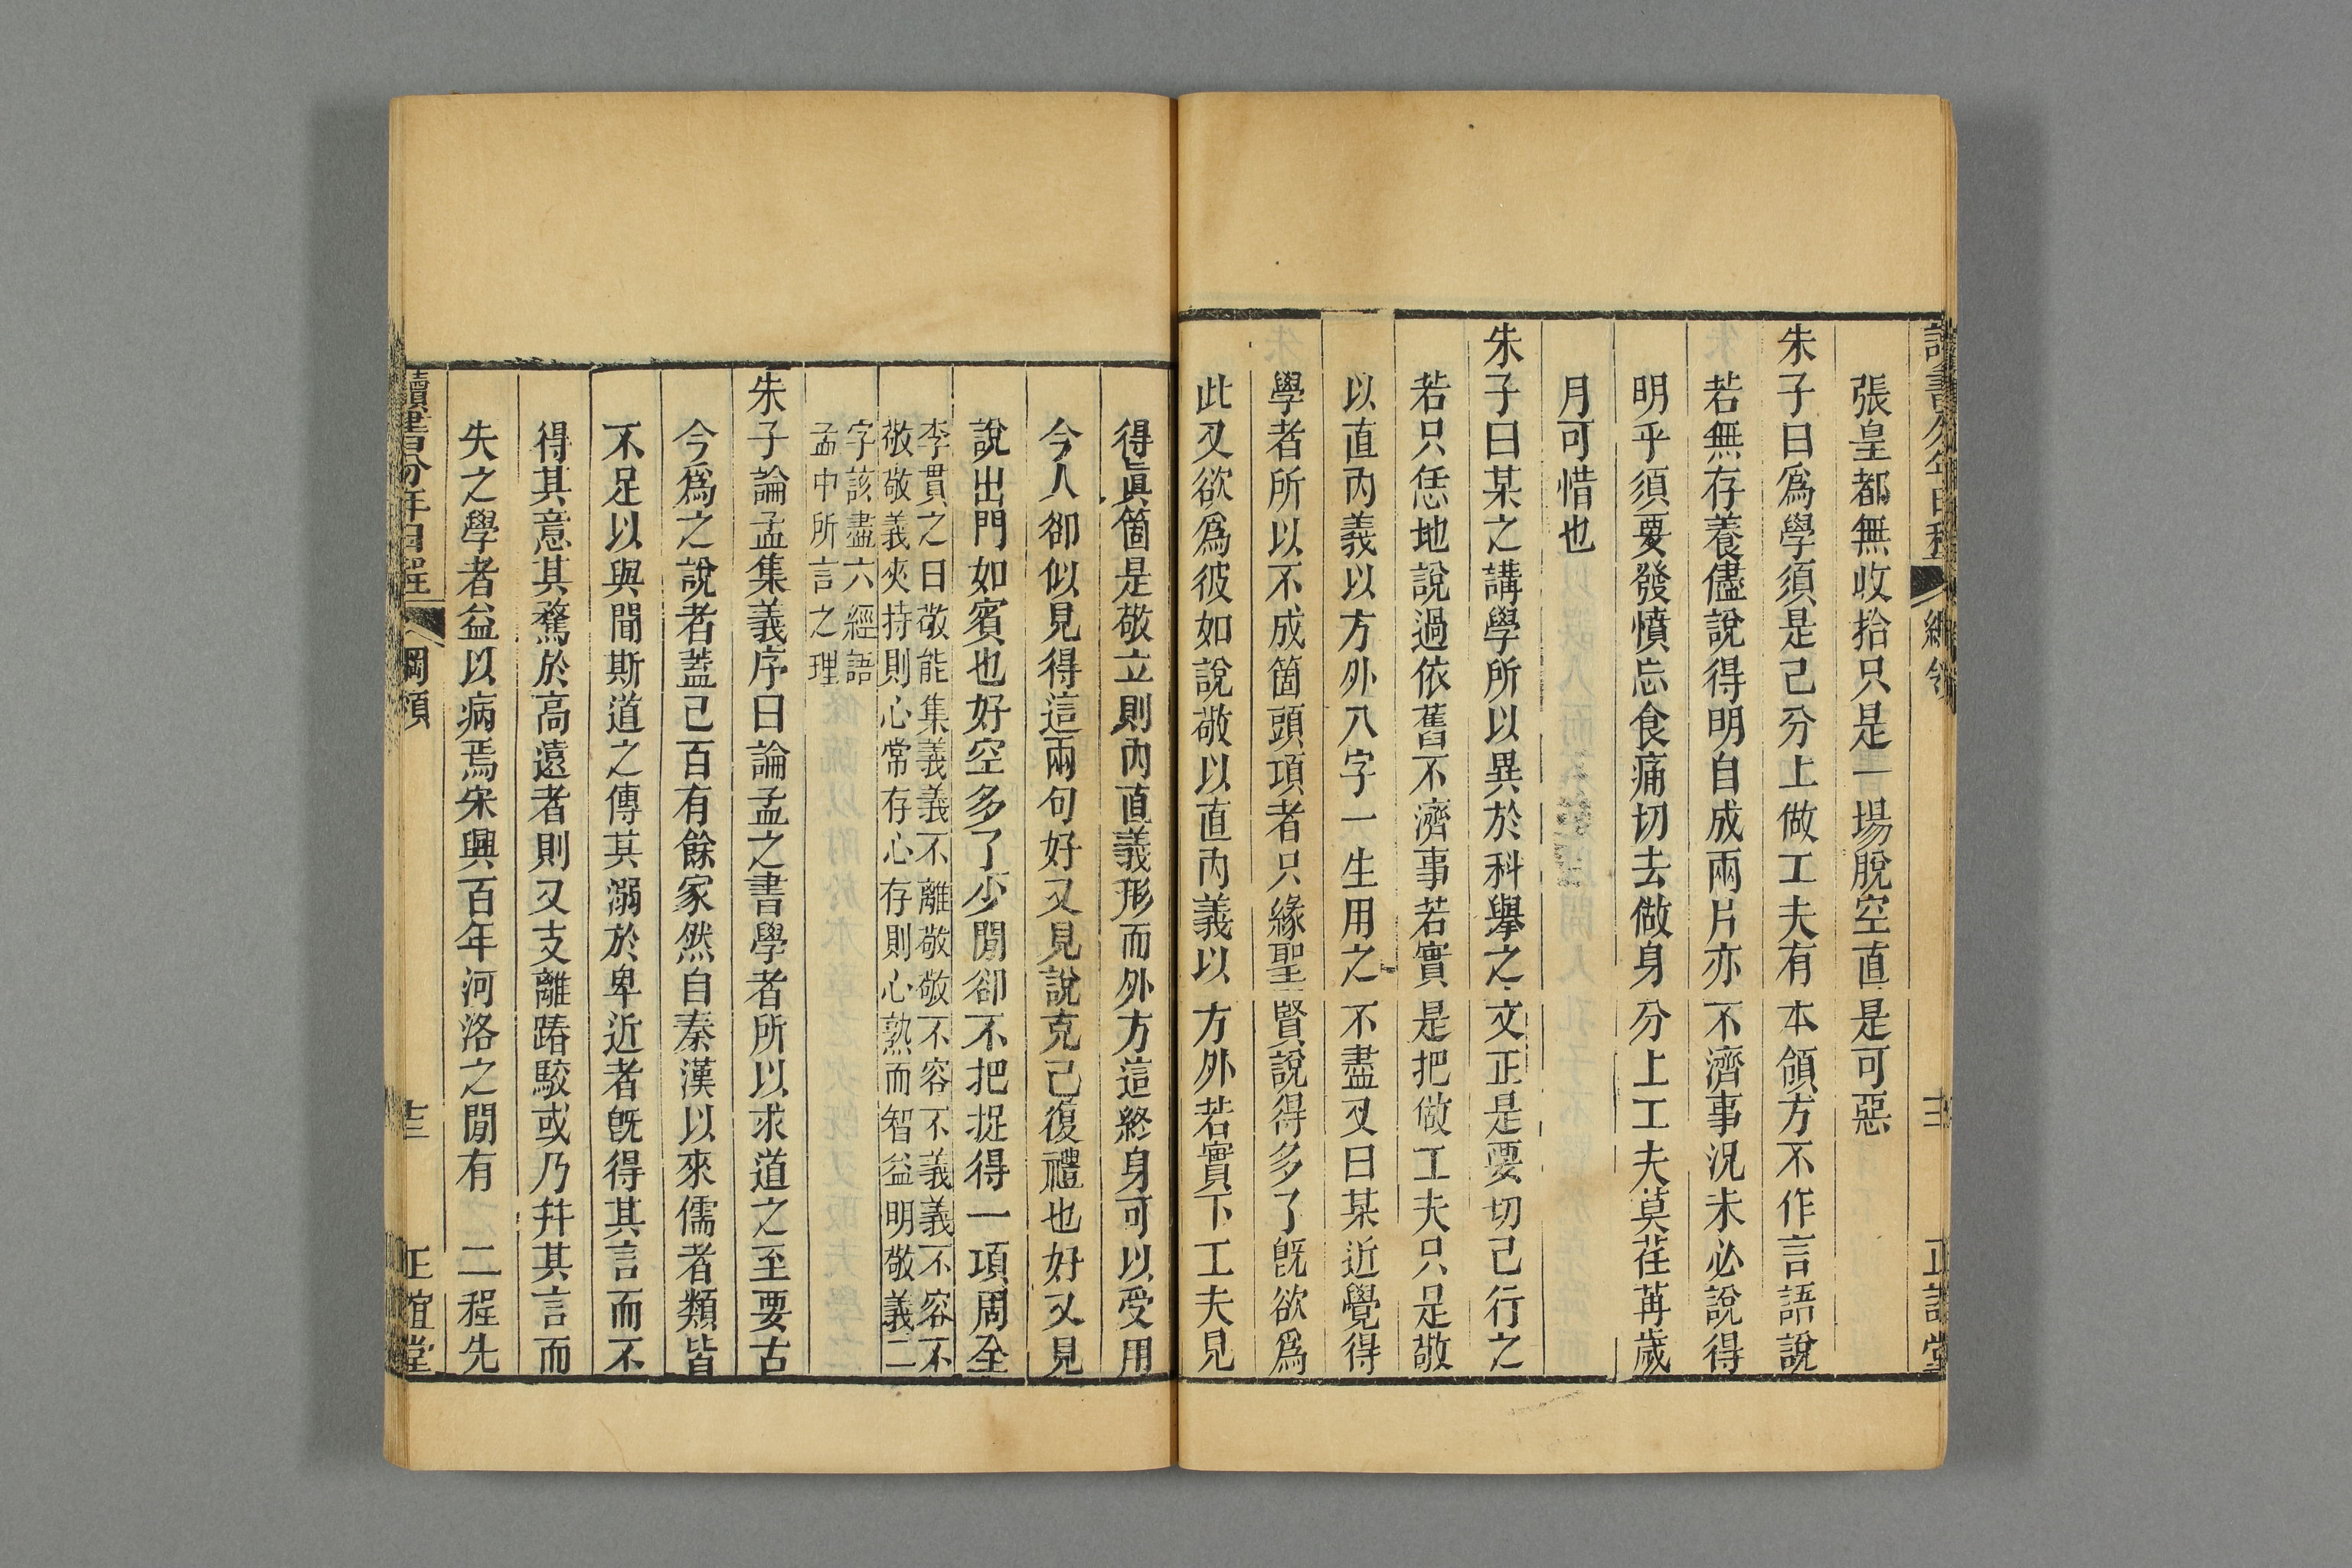 張皇都無收拾只是一場脫空直是可惡
朱子曰爲學須是己分上做工夫有本領方不作言語說
若無存養儘說得明自成兩片亦不濟事況未必說得
明乎須要發憤忘食痛切去做身分上工夫莫荏苒歲
月可惜也
朱子曰某之講學所以異於科擧之文正是要切己行之
若只恁地說過依舊不濟事若實是把做工夫只是敬
以直內義以方外八字一生用之不盡又曰某近覺得
學者所以不成箇頭項者只緣聖賢說得多了旣欲爲
此又欲爲彼如說敬以直內義以方外若實下工夫見
得眞箇是敬立則內直義形而外方這終身可以受用
今人卻似見得這兩句好又見說克己復禮也好又見
說出門如賓也好空多了少閒卻不把捉得一項周全
李貫之曰敬能集義義不離敬敬不容不義義不容不
敬敬義夾持則心常存心存則心熟而智益明敬義二
字該盡六經語
孟中所言之理
朱子論孟集義序曰論孟之書學者所以求道之至要古
今爲之說者蓋已百有餘家然自秦漢以來儒者類皆
不足以與聞斯道之傳其溺於卑近者旣得其言而不
得其意其騖於高遠者則又支離踳駮或乃幷其言而
失之學者益以病焉宋興百年河洛之閒有二程先
讀書分年日程
綱領
十三
正誼堂